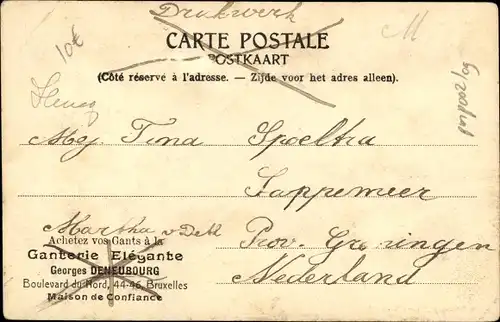 Drukwerk
10€
M
CARTE POSTALE
POSTKAART
(Côté réservé à l'adresse. — Zijde voor het adres alleen).
Mej. Tina Spoeltra
Sappemeer
Martha v Dell
Prov. Groningen
Nederland
Achetez vos Gants à la
Ganterie Elégante
Georges DENEUBOURG
Boulevard du Nord, 44-46, Bruxelles
Maison de Confiance